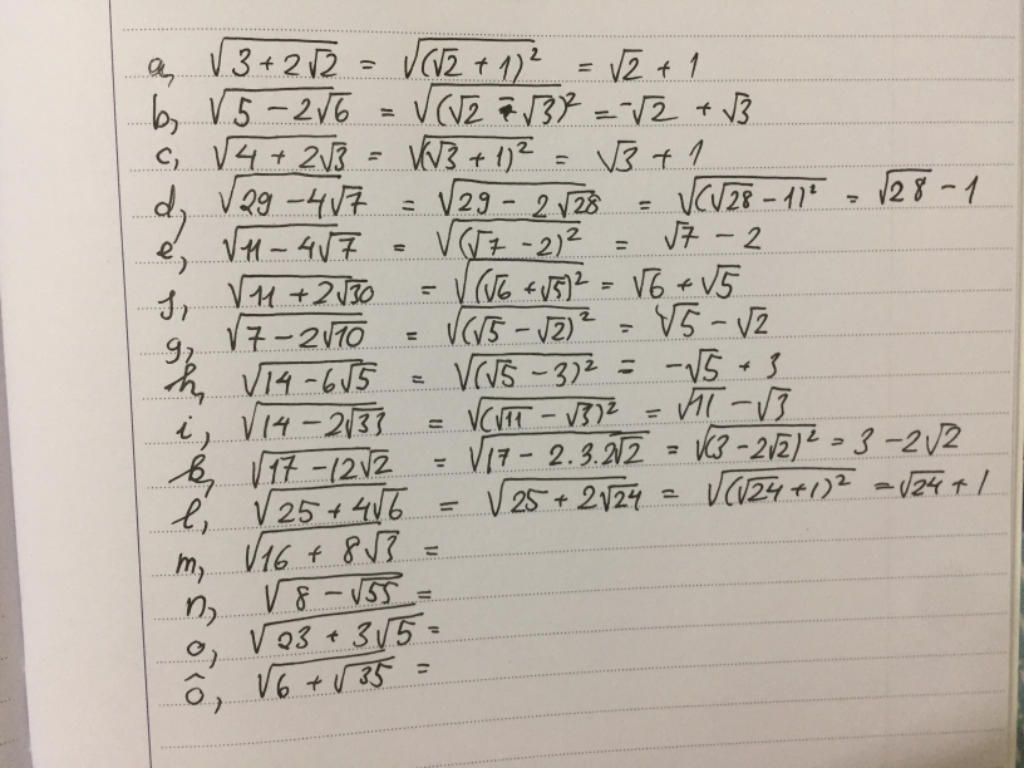 a, √(3 + 2√2) = √((√2 + 1)²) = √2 + 1
b, √(5 - 2√6) = √((√2 - √3)²) = -√2 + √3
c, √(4 + 2√3) = √((√3 + 1)²) = √3 + 1
d, √(29 - 4√7) = √(29 - 2√28) = √((√28 - 1)²) = √28 - 1
e, √(11 - 4√7) = √((√7 - 2)²) = √7 - 2
f, √(11 + 2√30) = √((√6 + √5)²) = √6 + √5
g, √(7 - 2√10) = √((√5 - √2)²) = √5 - √2
h, √(14 - 6√5) = √((√5 - 3)²) = -√5 + 3
i, √(14 - 2√33) = √((√11 - √3)²) = √11 - √3
k, √(17 - 12√2) = √(17 - 2.3.2√2) = √((3 - 2√2)²) = 3 - 2√2
l, √(25 + 4√6) = √(25 + 2√24) = √((√24 + 1)²) = √24 + 1
m, √(16 + 8√3) =
n, √(8 - √55) =
o, √(23 + 3√5) =
ô, √(6 + √35) =